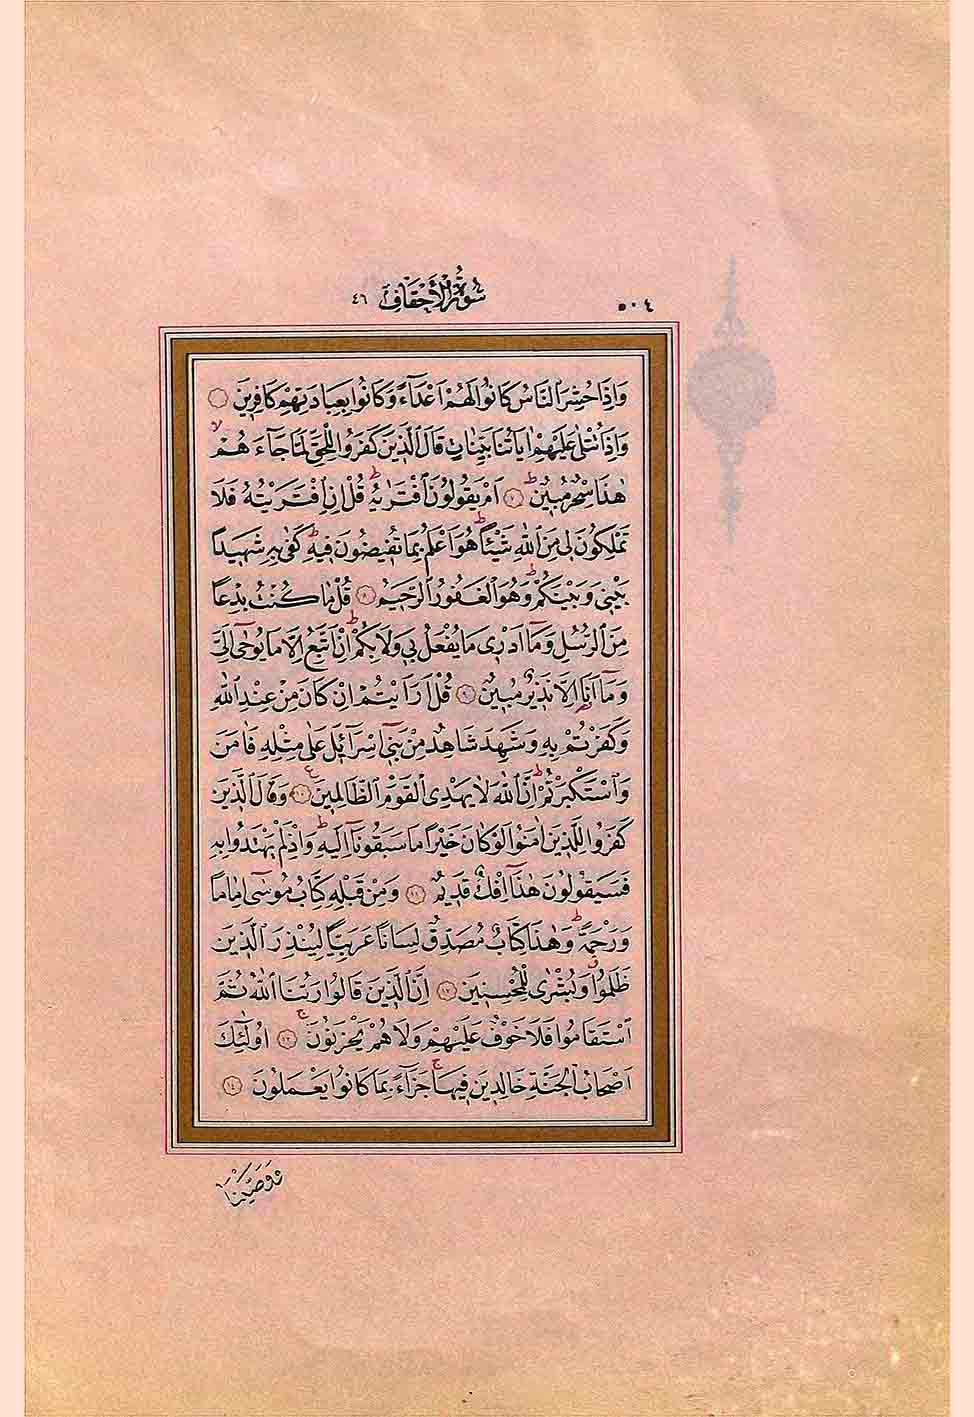 ٥٠٤ سُورَةُ الْأَحْقَافِ ٤٦
وَاِذَا حُشِرَ النَّاسُ كَانُوا لَهُمْ اَعْدَٓاءً وَكَانُوا بِعِبَادَتِهِمْ كَافِر۪ينَ
وَاِذَا تُتْلٰى عَلَيْهِمْ اٰيَاتُنَا بَيِّنَاتٍ قَالَ الَّذ۪ينَ كَفَرُوا لِلْحَقِّ لَمَّا جَٓاءَهُمْۙ
هٰذَا سِحْرٌ مُب۪ينٌۜ ﴿٧﴾ اَمْ يَقُولُونَ افْتَرٰيهُۜ قُلْ اِنِ افْتَرَيْتُهُ فَلَا
تَمْلِكُونَ ل۪ي مِنَ اللّٰهِ شَيْـٔاًۜ هُوَ اَعْلَمُ بِمَا تُف۪يضُونَ ف۪يهِۜ كَفٰى بِه۪ شَه۪يداً
بَيْن۪ي وَبَيْنَكُمْۜ وَهُوَ الْغَفُورُ الرَّح۪يمُ ﴿٨﴾ قُلْ مَا كُنْتُ بِدْعاً
مِنَ الرُّسُلِ وَمَٓا اَدْر۪ي مَا يُفْعَلُ ب۪ي وَلَا بِكُمْۜ اِنْ اَتَّبِعُ اِلَّا مَا يُوحٰٓى اِلَيَّ
وَمَٓا اَنَا۬ اِلَّا نَذ۪يرٌ مُب۪ينٌ ﴿٩﴾ قُلْ اَرَاَيْتُمْ اِنْ كَانَ مِنْ عِنْدِ اللّٰهِ
وَكَفَرْتُمْ بِه۪ وَشَهِدَ شَاهِدٌ مِنْ بَن۪ٓي اِسْرَٓائ۪لَ عَلٰى مِثْلِه۪ فَاٰمَنَ
وَاسْتَكْبَرْتُمْۜ اِنَّ اللّٰهَ لَا يَهْدِي الْقَوْمَ الظَّالِم۪ينَ۟ ﴿١٠﴾ وَقَالَ الَّذ۪ينَ
كَفَرُوا لِلَّذ۪ينَ اٰمَنُوا لَوْ كَانَ خَيْراً مَا سَبَقُونَٓا اِلَيْهِۜ وَاِذْ لَمْ يَهْتَدُوا بِه۪
فَسَيَقُولُونَ هٰذَٓا اِفْكٌ قَد۪يمٌ ﴿١١﴾ وَمِنْ قَبْلِه۪ كِتَابُ مُوسٰٓى اِمَاماً
وَرَحْمَةًۜ وَهٰذَا كِتَابٌ مُصَدِّقٌ لِسَاناً عَرَبِياًّ لِيُنْذِرَ الَّذ۪ينَ
ظَلَمُواۗ وَبُشْرٰى لِلْمُحْسِن۪ينَ ﴿١٢﴾ اِنَّ الَّذ۪ينَ قَالُوا رَبُّنَا اللّٰهُ ثُمَّ
اسْتَقَامُوا فَلَا خَوْفٌ عَلَيْهِمْ وَلَا هُمْ يَحْزَنُونَۚ ﴿١٣﴾ اُو۬لٰٓئِكَ
اَصْحَابُ الْجَنَّةِ خَالِد۪ينَ ف۪يهَاۚ جَزَٓاءً بِمَا كَانُوا يَعْمَلُونَ ﴿١٤﴾
وَوَصَّيْنَا